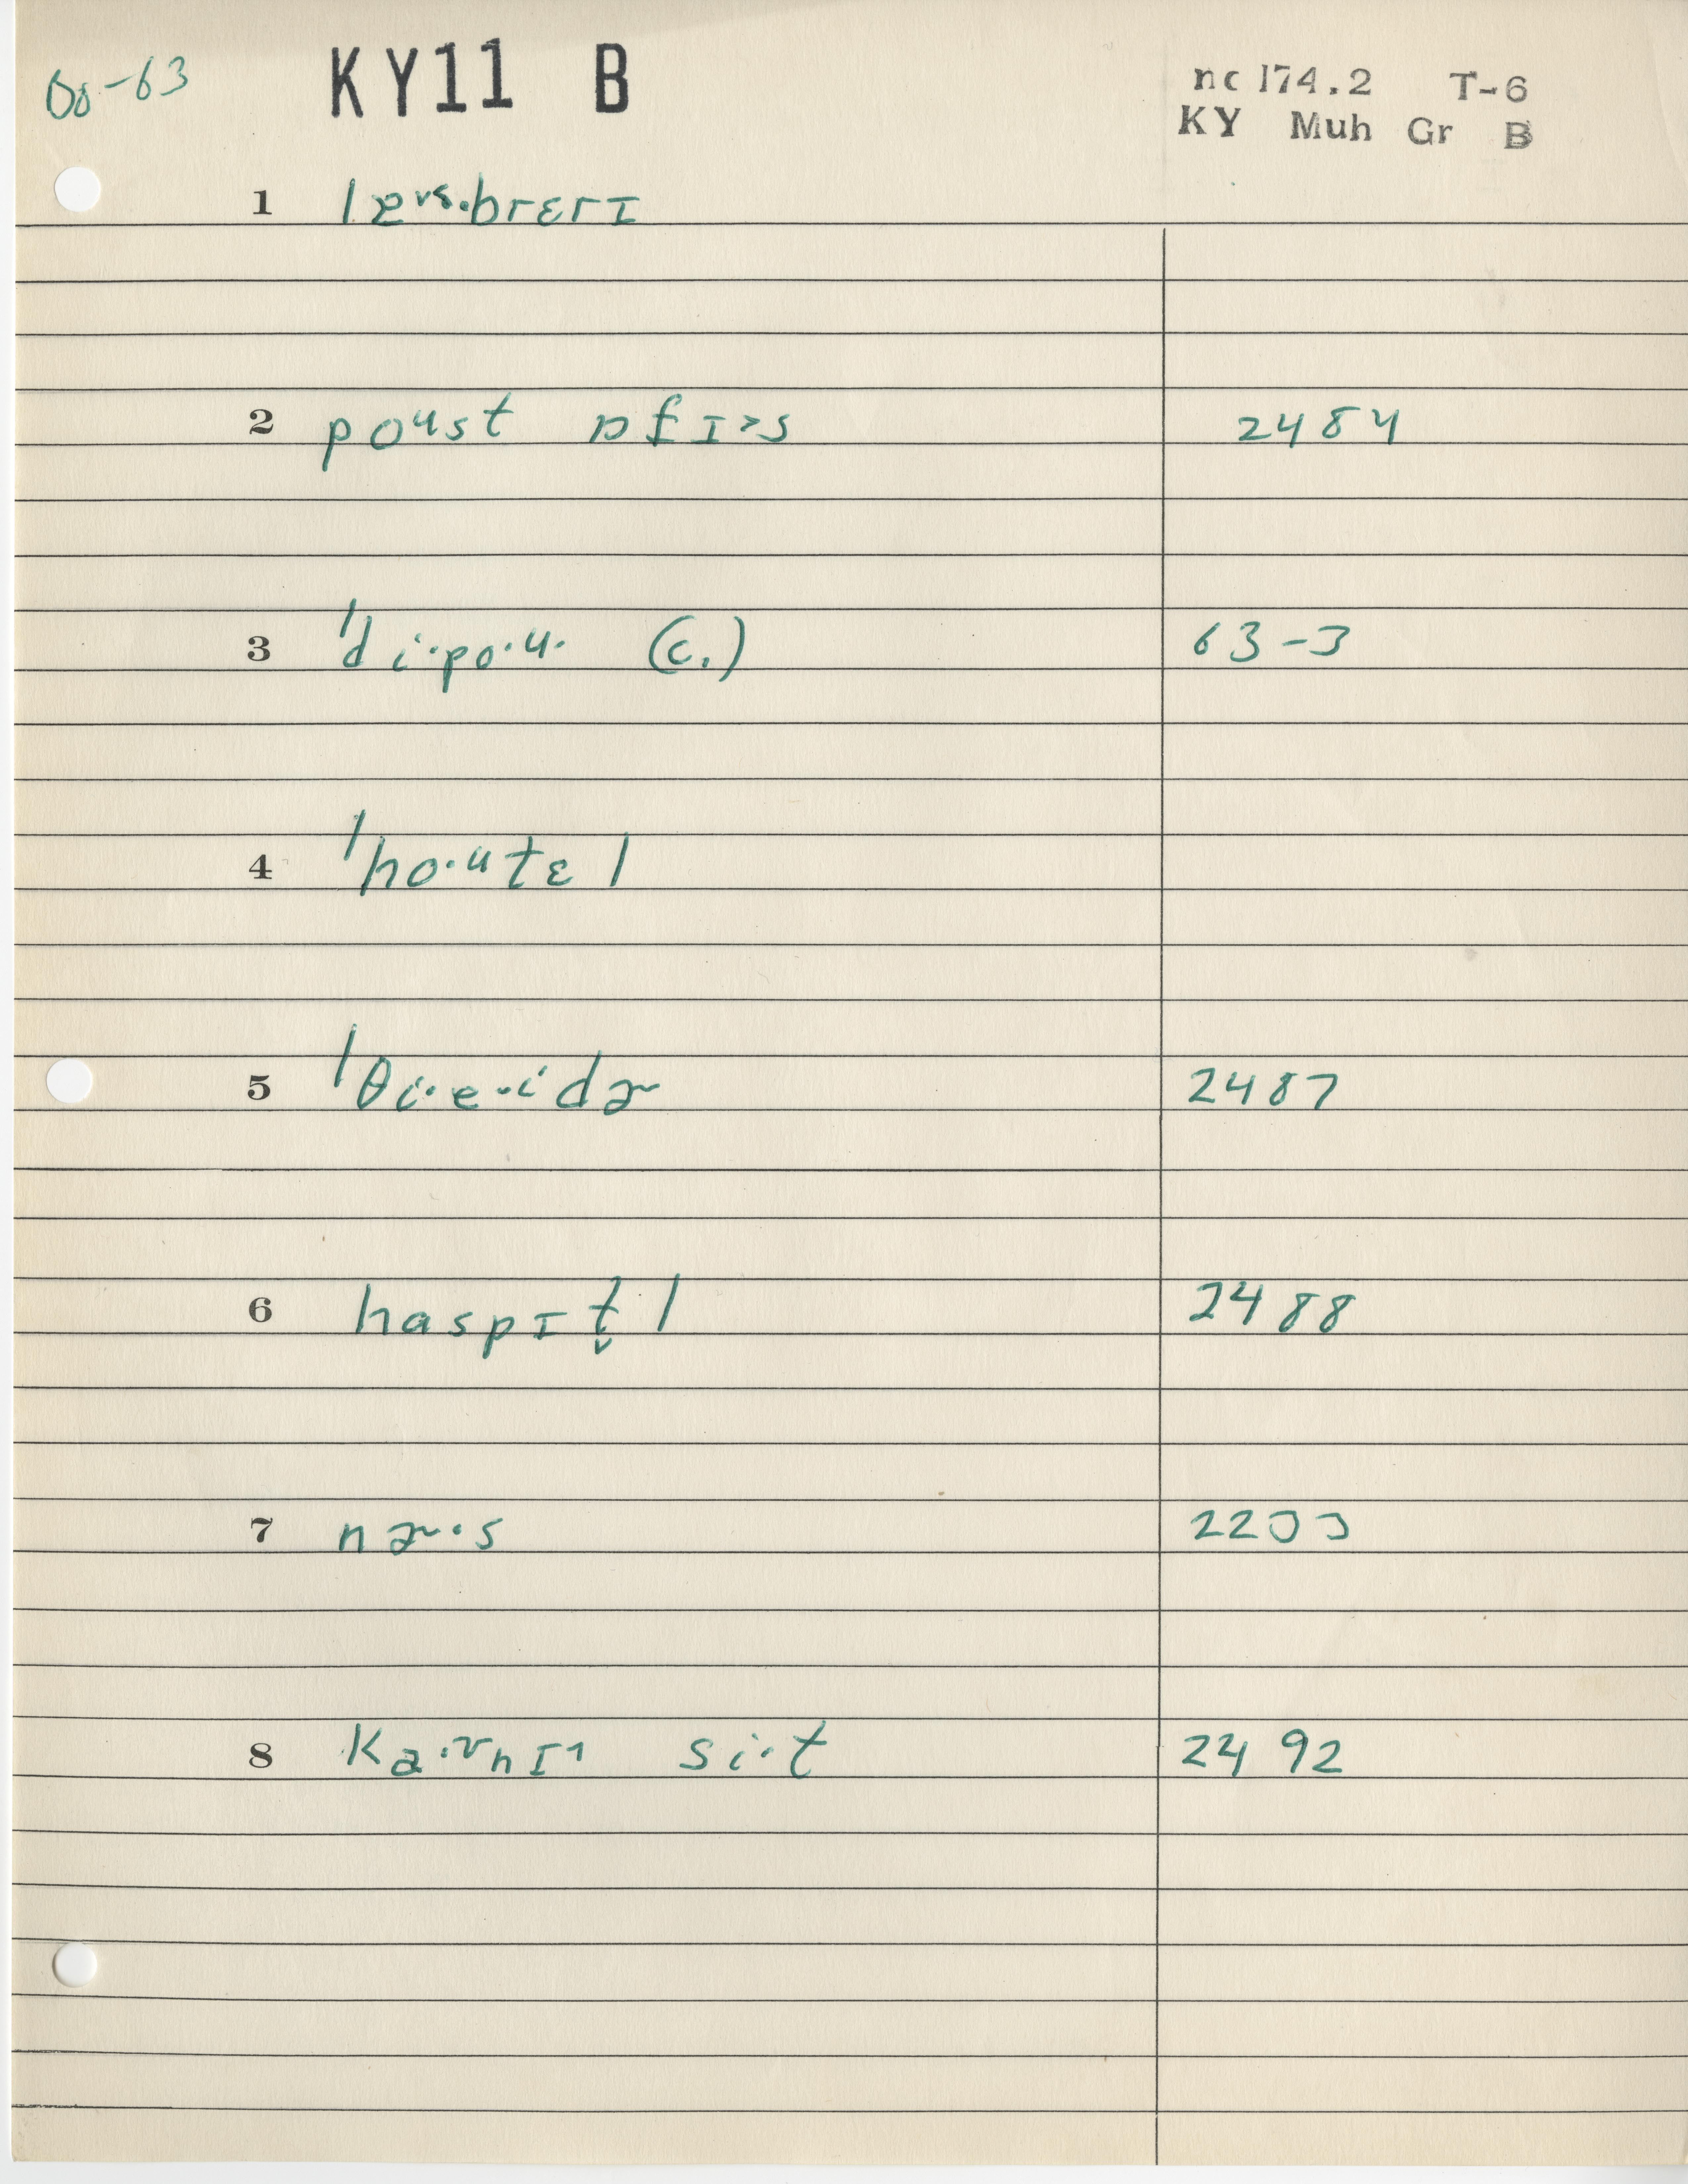 Do-63 KY11 B nc 174.2 T-6
KY Muh Gr B
1 laɪˑbrɛrɪ
2 poᵘst ɒfɪ>s 2484
3 ˈdiˑpoˑuˑ (c.) 63-3
4 ˈhoˑutɛl
5 ˈθiˑeˑidɚ 2487
6 haspɪt̬l 2488
7 nɚˑs 2233
8 siˑt 2492